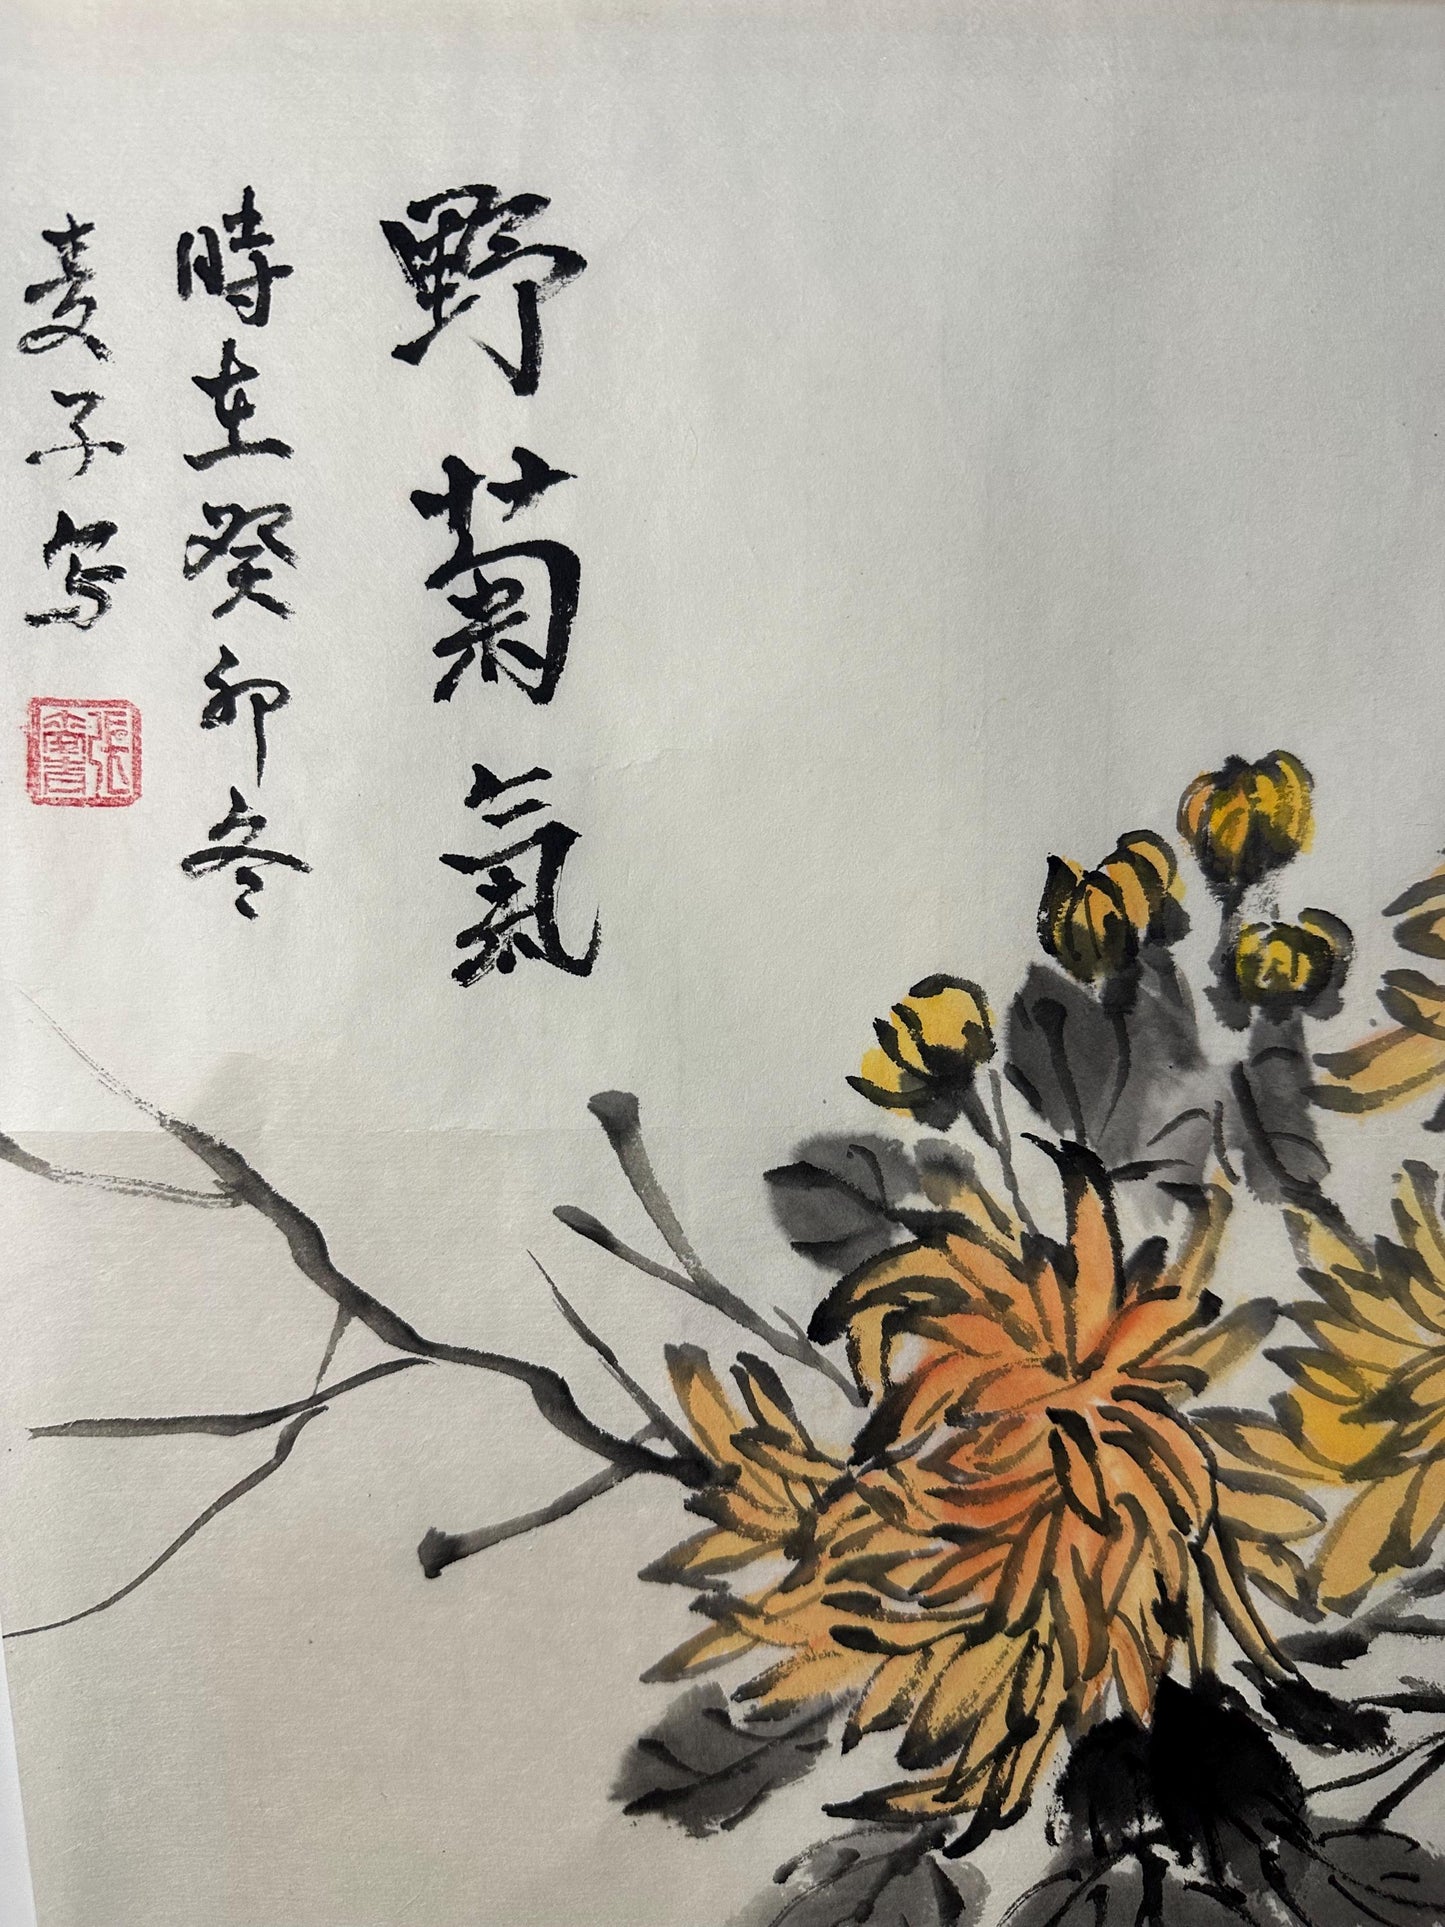 野菊氣
時在癸卯冬
麦子写